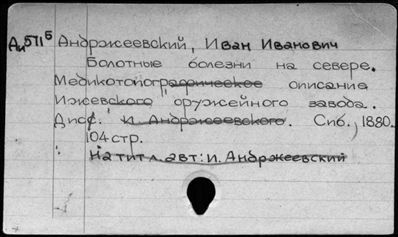 Ди571б Андржеевский, Иван Иванович
Болотные болезни на севере.
Медикотопографическое описание
Ижевского оружейного завода.
Дисс. И. Андржеевского. Спб., 1880.
104 стр.
На тит. л. авт: И. Андржеевский